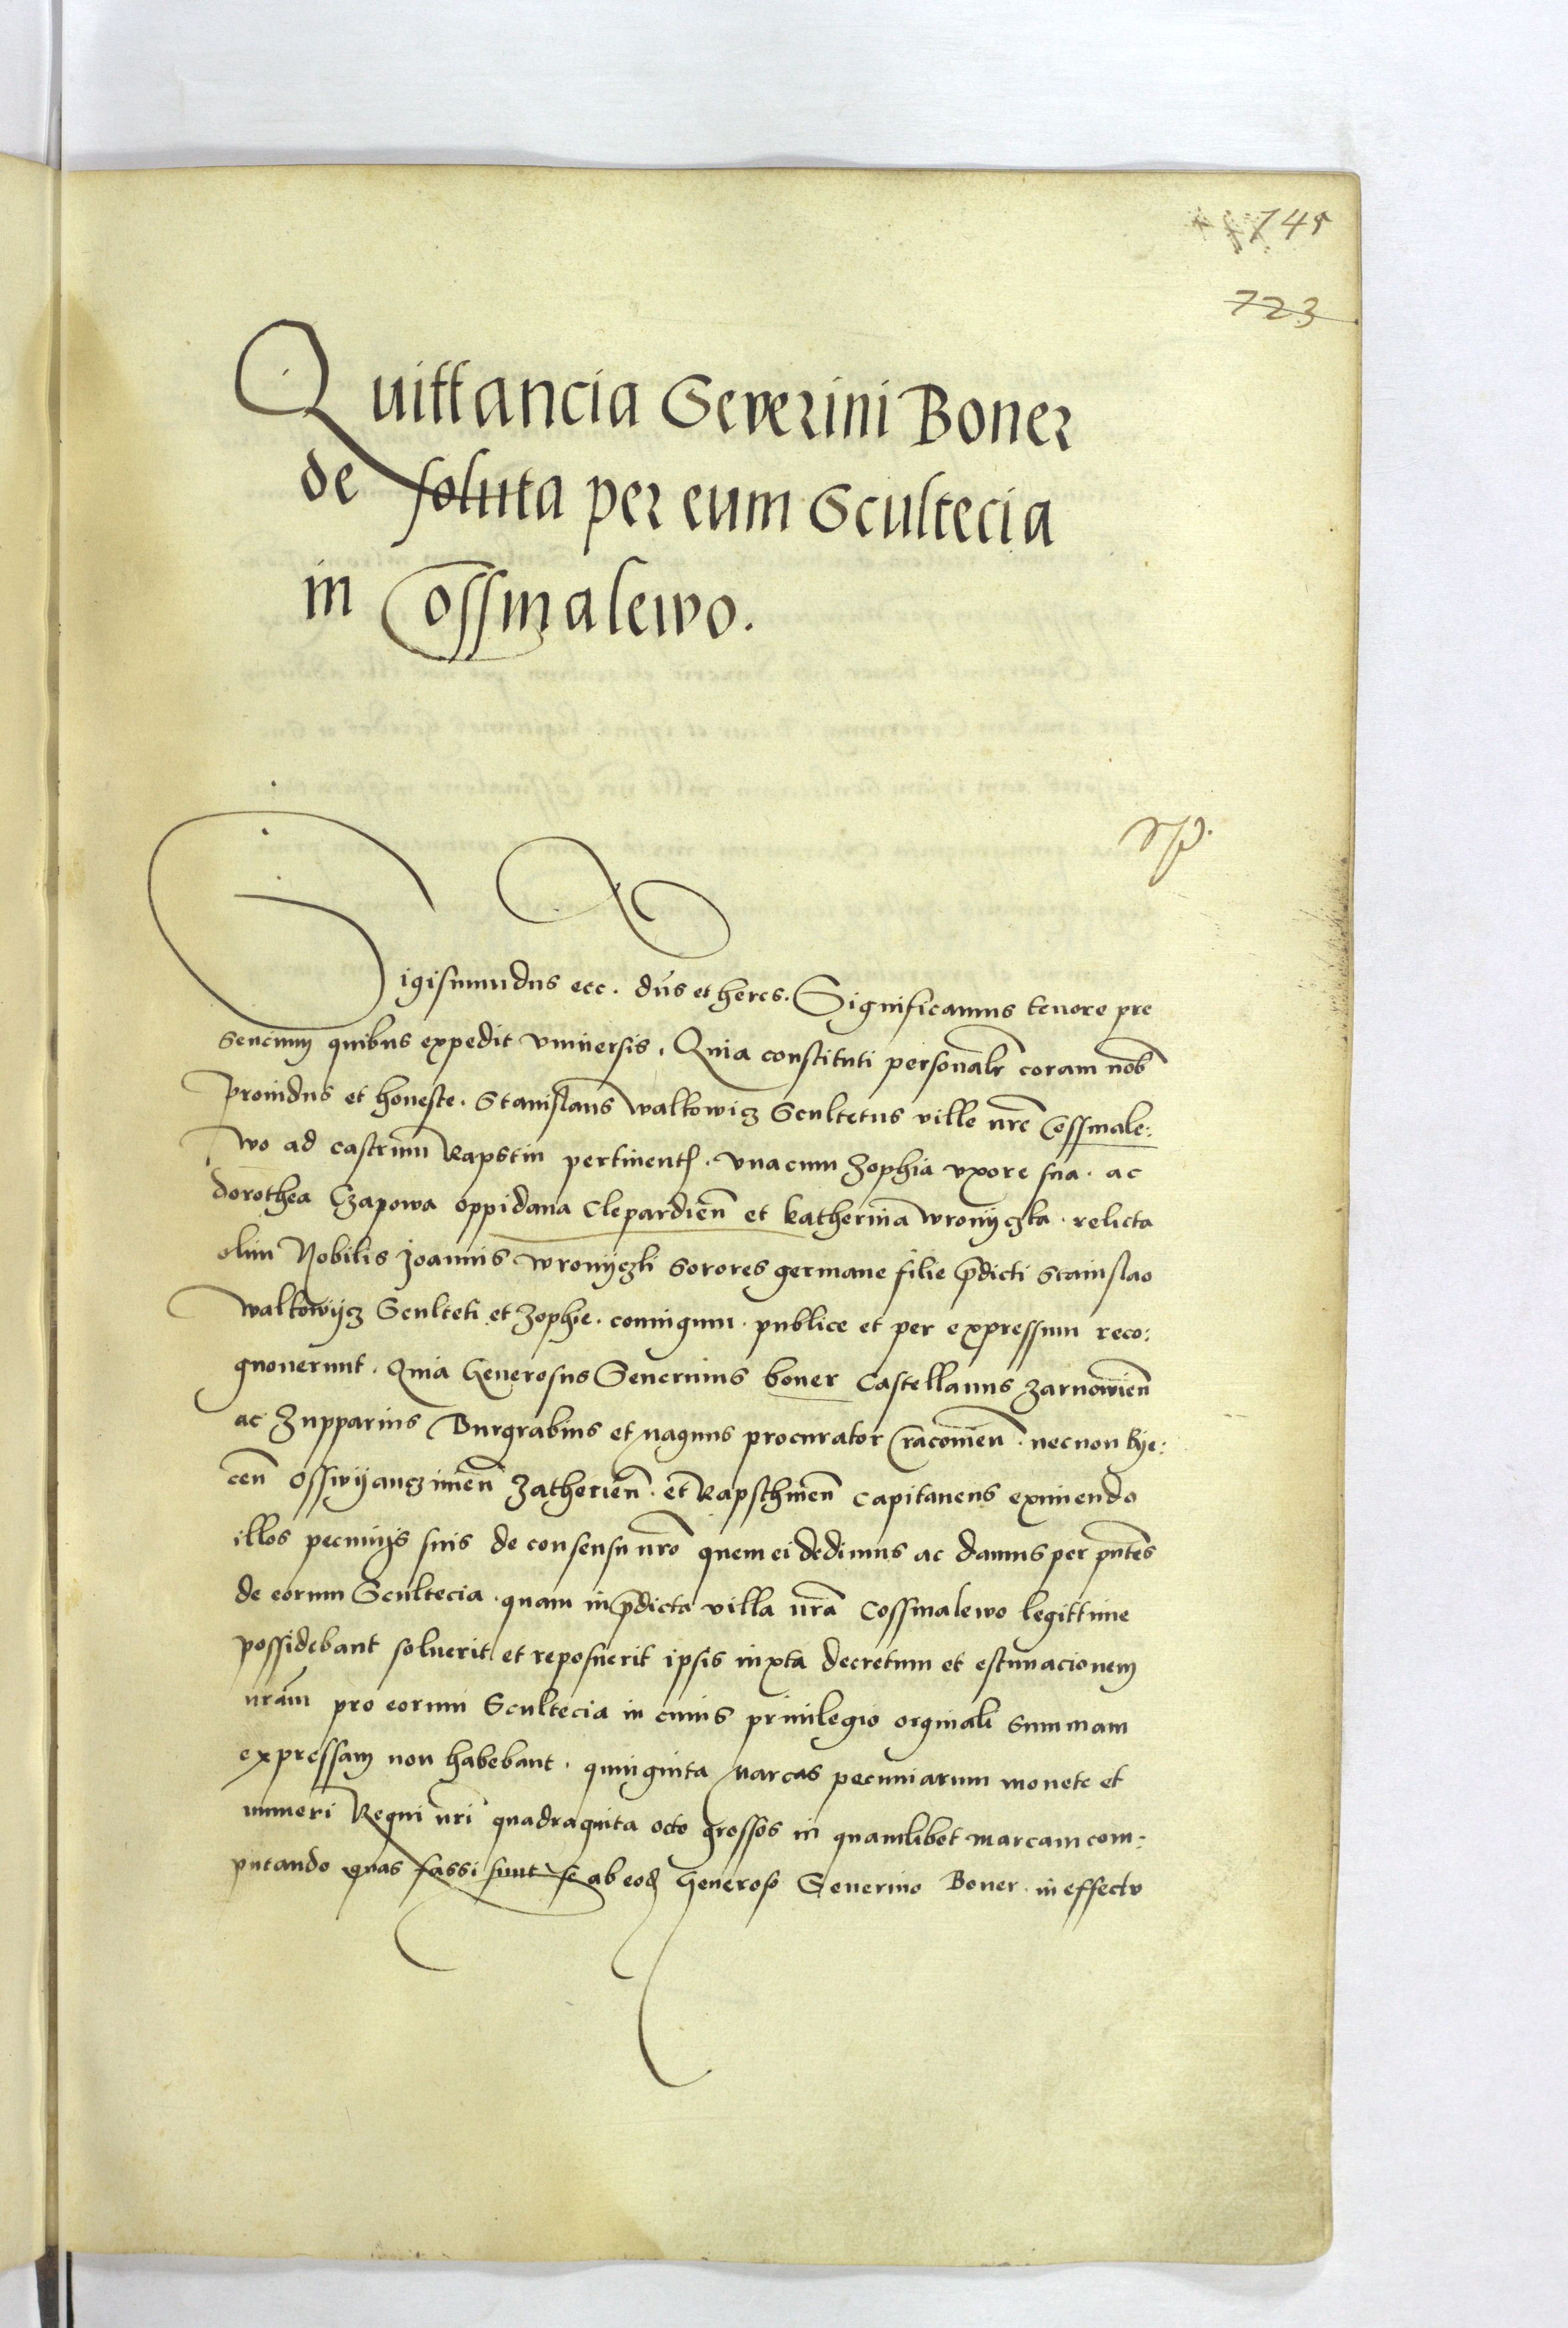 745
723
Quittancia Severini Boner
de soluta per eum Scultecia
in Cossmalewo.
Sigismundus ecc. dūs et heres. Significamus tenore pre
sencium quibus expedit vniuersis. Quia constituti personalr̄ coram nob̄
prouidus et honeste. Stanislaus Walkowicz Scultetus ville nrē Cossmale:
wo ad castrum Rapstin pertinentꝭ. vnacum Zophia vxore sua. ac
dorothea Czapowa oppidana Clepardien̄ et Katherina Wronyczka. relicta
olim Nobilis Joannis Wronyczki sorores germane filie p̄dicti Stanislao
Walkowycz Sculteti et Zophie. coniugum. publice et per expressum reco:
gnouerunt. Quia Generosus Seuerinus boner Castellanus Zarnowien̄
ac Zupparius Burgrabius et magnus procurator Cracouien̄. necnon bye:
cen̄ Osswyanczimen̄ Zatherien̄. et Rapschinen̄ Capitaneus eximendo
illos pecunijs suis de consensu nrō quem ei dedimus ac damus per pn̄tes
de eorum Scultecia. quam in p̄dicta villa nrā Cossmalewo legittime
possidebant soluerit et reposuerit ipsis iuxta decretum et estimacionem
nrām pro eorum Scultecia in cuius priuilegio orginali summam
expressam non habebant. quinginta marcas pecuniarum monete et
numeri Regni nrī quadraginta octo grossos in quamlibet marcam com:
putando quas fassi sunt se ab eodꝭ Generoso Seuerino Boner. in effectu